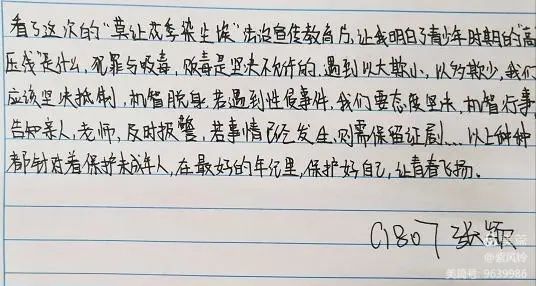 看了这次的“莫让花季染尘埃”法治宣传教育片，让我明白了青少年时期的“高
压线”是什么，犯罪与吸毒，贩毒是坚决不允许的，遇到以大欺小，以多欺少，我们
应该坚决抵制，机智脱身，若遇到性侵事件，我们要态度坚决，机智行事，
告知亲人，老师，及时报警，若事情已经发生，则需保留证剧……以上种种
都针对着保护未成年人，在最好的年纪里，保护好自己，让青春飞扬。
C1807 张颖
美篇
@紫风铃
美篇号：9639986